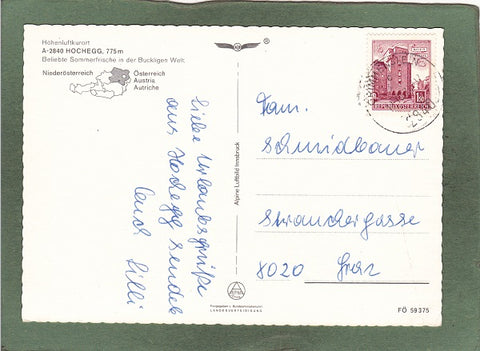 Höhenluftkurort
A-2840 HOCHEGG, 775 m
Beliebte Sommerfrische in der Buckligen Welt
Niederösterreich
Österreich
Austria
Autriche
Liebe Urlaubsgrüße
aus Hochegg sendet
Euch Lilli
Alpine Luftbild Innsbruck
REPUBLIK ÖSTERREICH
Fam.
Schmidbauer
Strauchergasse
8020 Graz
LANDESVERTEIDIGUNG
FÖ 59375